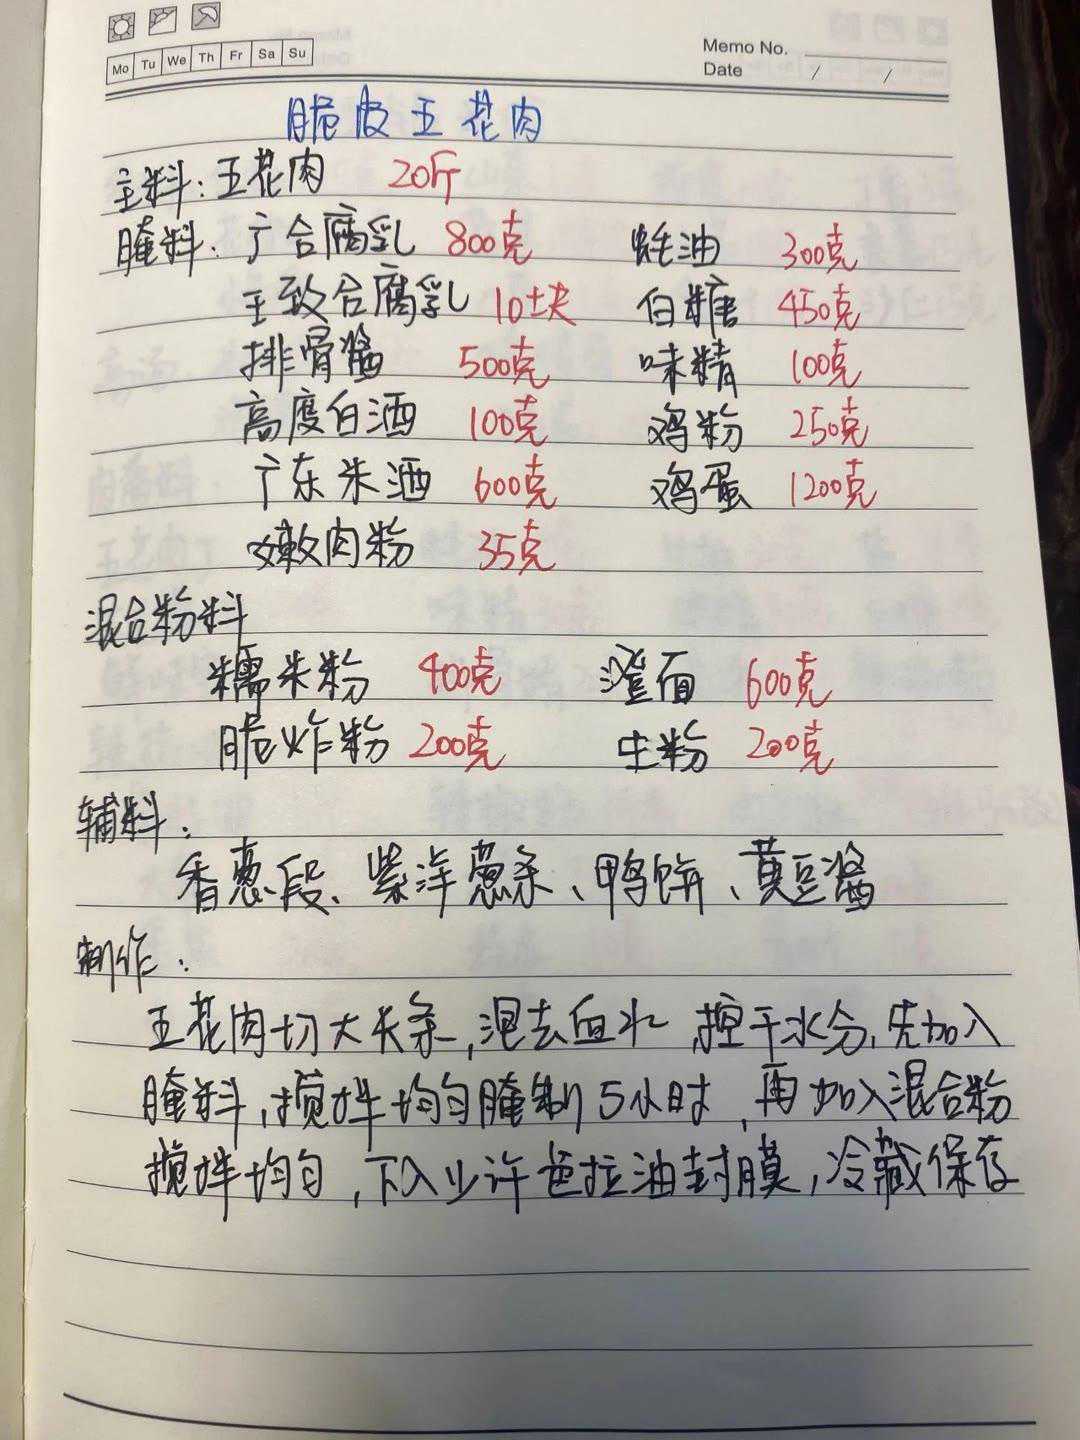 Mo Tu We Th Fr Sa Su
Memo No.
Date / /
脆皮五花肉
主料:五花肉 20斤
腌料:广合腐乳 800克 蚝油 300克
王致合腐乳 10块 白糖 450克
排骨酱 500克 味精 100克
高度白酒 100克 鸡粉 250克
广东米酒 600克 鸡蛋 1200克
嫩肉粉 35克
混合粉料
糯米粉 400克 澄面 600克
脆炸粉 200克 生粉 200克
辅料:
香葱段、紫洋葱条、鸭饼、黄豆酱
制作:
五花肉切大长条,泡去血水,控干水分,先加入
腌料,搅拌均匀腌制5小时,再加入混合粉
搅拌均匀,下入少许色拉油封膜,冷藏保存